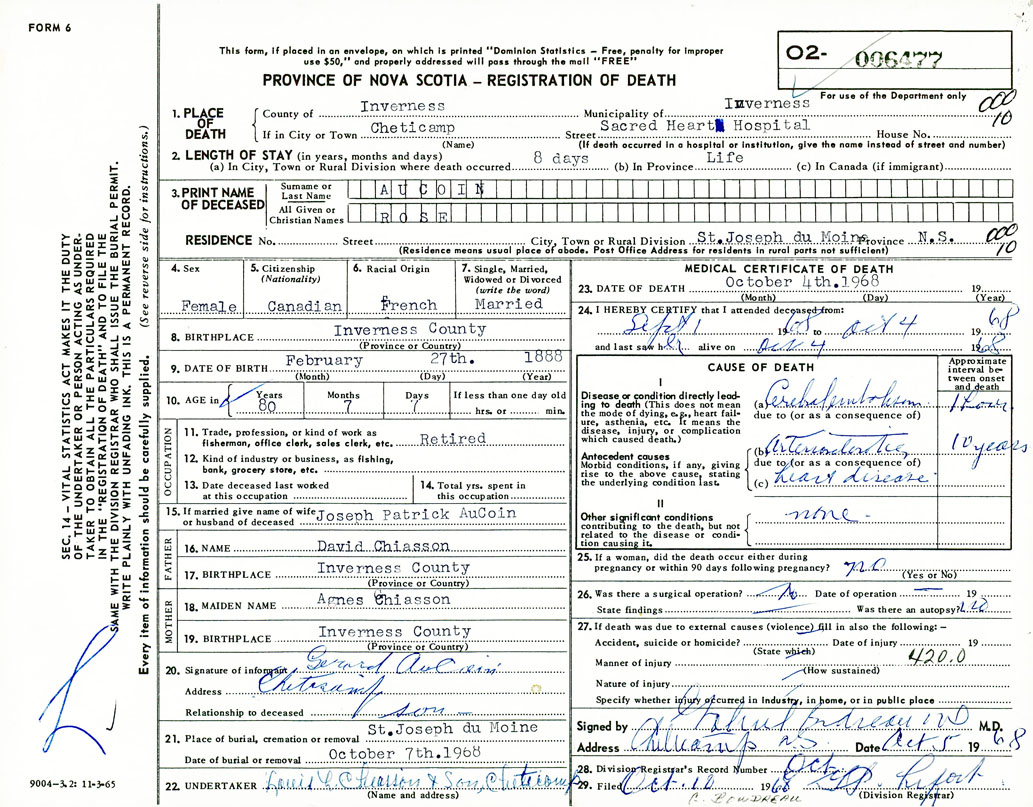 FORM 6
This form, if placed in an envelope, on which is printed "Dominion Statistics – Free, penalty for improper
use $50," and properly addressed will pass through the mail "FREE"
PROVINCE OF NOVA SCOTIA – REGISTRATION OF DEATH
02- 006477
For use of the Department only
000
10
1. PLACE OF DEATH
County of Inverness Municipality of Inverness
If in City or Town Cheticamp Street Sacred Heart Hospital House No.
(Name) (If death occurred in a hospital or institution, give the name instead of street and number)
2. LENGTH OF STAY (in years, months and days)
(a) In City, Town or Rural Division where death occurred 8 days (b) In Province Life (c) In Canada (if immigrant)
3. PRINT NAME OF DECEASED
Surname or Last Name AUCOIN
All Given or Christian Names ROSE
RESIDENCE No. Street City, Town or Rural Division St.Joseph du Moine Province N.S.
(Residence means usual place of abode. Post Office Address for residents in rural parts not sufficient)
000
10
4. Sex
Female
5. Citizenship
(Nationality)
Canadian
6. Racial Origin
French
7. Single, Married,
Widowed or Divorced
(write the word)
Married
8. BIRTHPLACE Inverness County
(Province or Country)
9. DATE OF BIRTH February 27th. 1888
(Month) (Day) (Year)
10. AGE in Years Months Days If less than one day old
80 7 7 hrs. or min.
OCCUPATION
11. Trade, profession, or kind of work as
fisherman, office clerk, sales clerk, etc. Retired
12. Kind of industry or business, as fishing,
bank, grocery store, etc.
13. Date deceased last worked
at this occupation
14. Total yrs. spent in
this occupation
15. If married give name of wife
or husband of deceased Joseph Patrick AuCoin
FATHER
16. NAME David Chiasson
17. BIRTHPLACE Inverness County
(Province or Country)
MOTHER
18. MAIDEN NAME Agnes Chiasson
19. BIRTHPLACE Inverness County
(Province or Country)
20. Signature of informant Gerard AuCoin
Address Cheticamp
Relationship to deceased son
21. Place of burial, cremation or removal St.Joseph du Moine
Date of burial or removal October 7th.1968
22. UNDERTAKER Louis L. Chiasson & Son, Cheticamp
(Name and address)
MEDICAL CERTIFICATE OF DEATH
23. DATE OF DEATH October 4th.1968 19
(Month) (Day) (Year)
24. I HEREBY CERTIFY that I attended deceased from:
Sept 1 1968 to Oct 4 1968
and last saw her alive on Oct 4 1968
CAUSE OF DEATH
Approximate interval between onset and death
I
Disease or condition directly leading to death (This does not mean
the mode of dying, e.g., heart failure, asthenia, etc. It means the
disease, injury, or complication
which caused death.)
(a) Cerebral embolism 1 hour
due to (or as a consequence of)
Antecedent causes
Morbid conditions, if any, giving
rise to the above cause, stating
the underlying condition last.
(b) Arteriosclerotic 10 years
due to (or as a consequence of)
(c) heart disease
II
Other significant conditions
contributing to the death, but not
related to the disease or condition causing it.
none
25. If a woman, did the death occur either during
pregnancy or within 90 days following pregnancy? no
(Yes or No)
26. Was there a surgical operation? No Date of operation 19
State findings Was there an autopsy? no
27. If death was due to external causes (violence) fill in also the following:–
Accident, suicide or homicide? Date of injury 19
(State which)
420.0
Manner of injury
(How sustained)
Nature of injury
Specify whether injury occurred in Industry, in home, or in public place
Signed by Gabriel Boudreau MD M.D.
Address Cheticamp N.S. Date Oct 5 1968
28. Division Registrar's Record Number Oct.
29. Filed Oct. 10 1968
(Division Registrar)
C. BOUDREAU
SEC. 14 – VITAL STATISTICS ACT MAKES IT THE DUTY
OF THE UNDERTAKER OR PERSON ACTING AS UNDER-
TAKER TO OBTAIN ALL THE PARTICULARS REQUIRED
IN THE "REGISTRATION OF DEATH" AND TO FILE THE
SAME WITH THE DIVISION REGISTRAR WHO SHALL ISSUE THE BURIAL PERMIT.
WRITE PLAINLY WITH UNFADING INK. THIS IS A PERMANENT RECORD.
Every item of information should be carefully supplied. (See reverse side for instructions.)
9004–3.2: 11-3-65